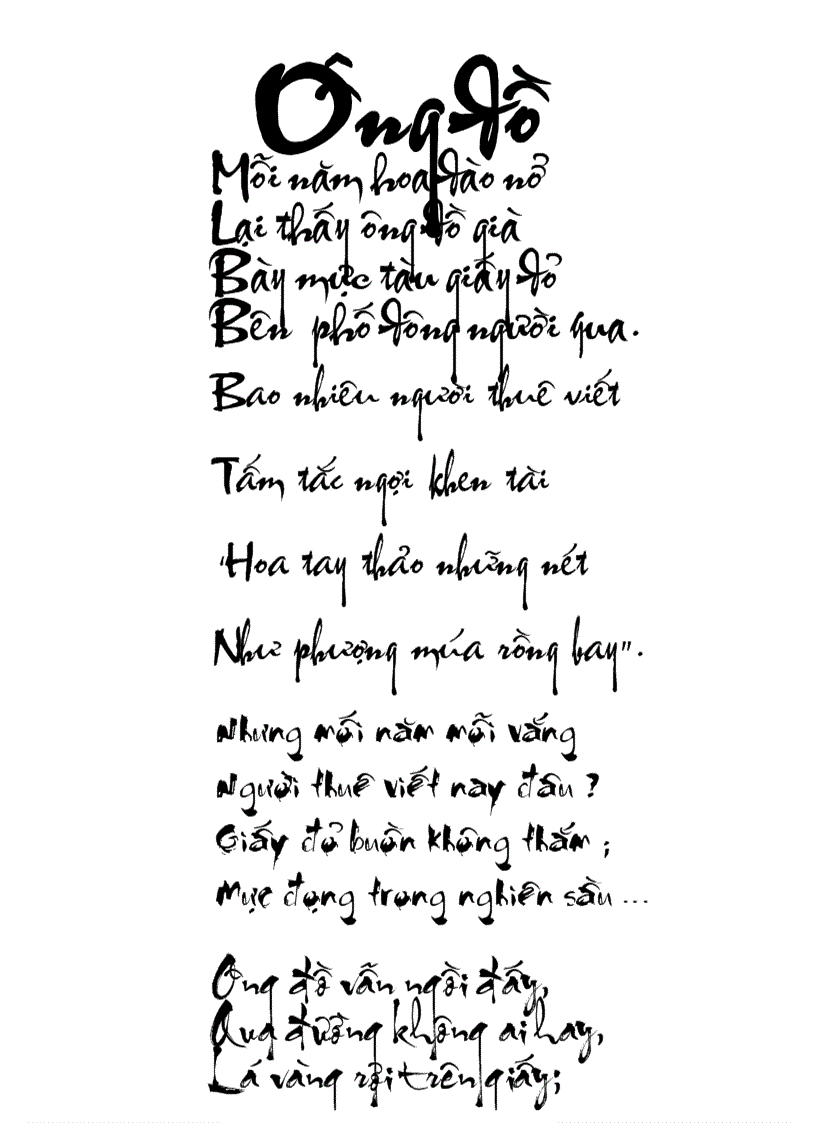 Ông đồ
Mỗi năm hoa đào nở
Lại thấy ông đồ già
Bày mực tàu giấy đỏ
Bên phố đông người qua.
Bao nhiêu người thuê viết
Tấm tắc ngợi khen tài
"Hoa tay thảo những nét
Như phượng múa rồng bay".
Nhưng mối năm mỗi vắng
Người thuê viết nay đâu ?
Giấy đỏ buồn không thắm ;
Mực đọng trong nghiên sầu ...
Ông đồ vẫn ngồi đấy,
Qua đường không ai hay,
Lá vàng rơi trên giấy;